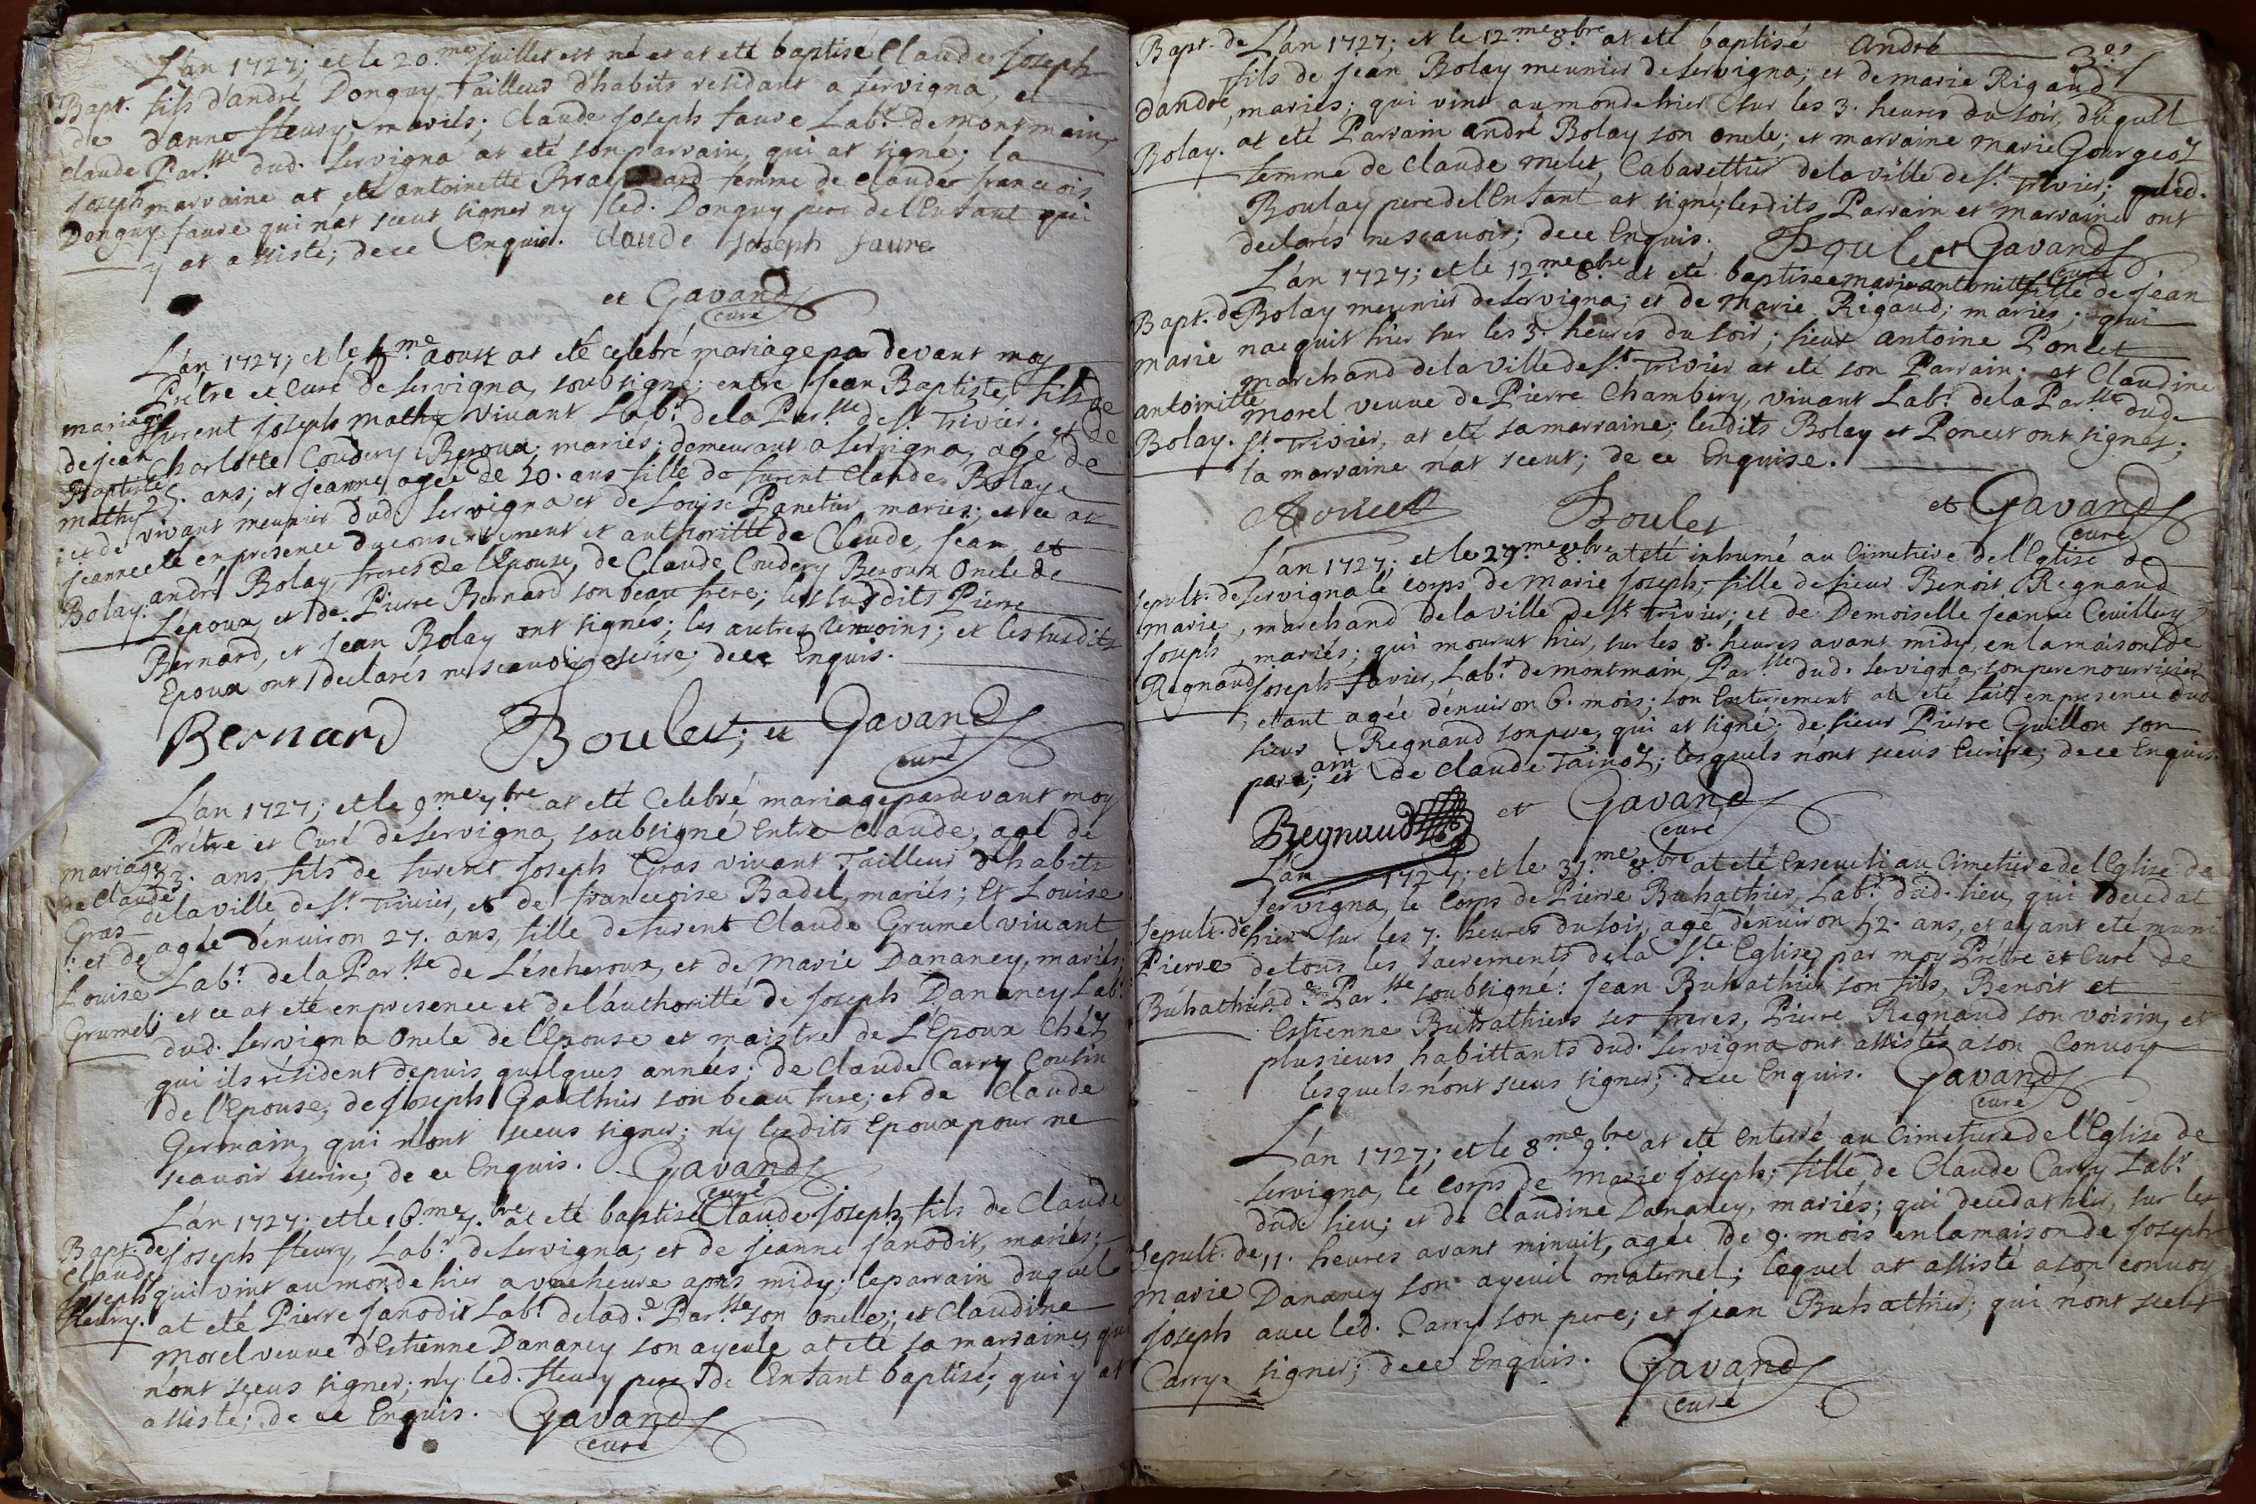 L'an 1727; et le 20.me juillet est né et at eté baptisé Claude Joseph
Bapt. fils d'andré Donguy Tailleur d'habits residant a servigna, et
de d'anne fleury, mariés; Claude Joseph faure Lab.r de montmain,
Claude Par.sse dud. servigna at eté son parrain, qui at signé; la
Joseph marraine at eté antoinette femme de Claude francois
Donguy faure qui nat sceut signer ny led. Donguy pere de l'Enfant qui
y at assisté; de ce Enquis. Claude Joseph faure
et Gavand
curé
L'an 1727; et le me aoust at eté celebré mariage par devant moy
Prétre et Curé de servigna, soubsigné; entre Jean Baptiste, fils de
mariage furent Joseph mathy vivant Lab.r de la Par.sse de S.t Trivier, et de
de jean Charlotte Coudery Beroux, mariés; demeurant a servigna, agé de
Baptiste 25. ans; et jeanne, agée de 20. ans fille de furent Claude Bolay
mathy vivant meunier dud. servigna et de Louise Panetier, mariés; et ce at
; et de eté en presence du consentement et authoritté de Claude, Jean, et
jeanne andré Bolay freres de l'Epouse, de Claude Coudery Beroux Oncle de
Bolay. L'époux, et de Pierre Bernard son beau frere; lesdits Pierre
Bernard, et Jean Bolay ont signés; les autres temoins; et les susdits
Epoux ont declarés ne scavoir escrire; de ce Enquis.
Bernard Boulet; et Gavand
curé
L'an 1727; et le 9.me 7.bre at eté Celebré mariage par devant moy
Prétre et Curé de servigna, soubsigné Entre Claude, agé de
mariage 23. ans, fils de furent Joseph Gras vivant Tailleur d'habits
de Claude de la ville de S.t Trivier, et de francoise Badel, mariés; Et Louise
Gras agée d'environ 27. ans, fille de furent Claude Grumel vivant
; et de Lab.r de la Par.sse de Léscheroux, et de Marie Dananey, mariés;
Louise et ce at eté en presence et de l'authoritté de Joseph Dananey Lab.r
Grumel. dud. servigna Oncle de l'Epouse et maistre de L'Epoux chéz
qui ils résident depuis quelques années; de Claude Carry Cousin
de l'Epouse, de Joseph Gauthier son beau frere; et de Claude
Germain, qui n'ont sceus signer; n'y lesdits Epoux pour ne
scavoir écrire; de ce Enquis. Gavand
curé
L'an 1727; et le 16.me 7.bre at eté baptisé Claude Joseph, fils de Claude
Bapt. de Joseph fleury, Lab.r de servigna; et de jeanne Janodit, mariés;
Claude qui vint au monde hier a une heure aprés midy; le parrain duquel
Joseph at eté Pierre Janodit Lab.r de lad.e Par.sse son Oncle; et Claudine
fleury. Morel veuve d'Estienne Dananey son ayeule at eté sa marraine, qui
n'ont sceus signer; n'y led. fleury pere de l'Enfant baptisé; qui y at
assisté; de ce Enquis. Gavand
curé
Bapt. de L'an 1727; et le 12.me 8.bre at eté baptisé André
fils de Jean Bolay meunier de servigna; et de marie Rigaud
d'andré mariés; qui vint au monde hier sur les 3. heures du soir, duquel
Bolay. at eté Parrain andré Bolay son oncle; et marraine marie Gourgeoz
femme de Claude melet, Cabarettier de la ville de S.t Trivier; led.
Boulay pere de l'Enfant at signé; lesdits Parrain et marraine ont
declarés ne scavoir; de ce Enquis. Boulet et Gavand
curé
L'an 1727; et le 12.me 8.bre at eté baptisée marie antoinette fille de Jean
Bapt. de Bolay meunier de servigna; et de marie Rigaud; mariés; qui
marie nacquit hier sur les 3. heures du soir; sieur antoine Poncet
marchand de la ville de S.t Trivier at eté son Parrain; et Claudine
antoinitte morel veuve de Pierre Chambery, vivant Lab.r de la Par.sse dud.
Bolay. S.t Trivier, at eté sa marraine; lesdits Bolay et Poncet ont signés;
la marraine n'at sceut; de ce Enquise.
Poncet Boulet et Gavand
curé
L'an 1727; et le 29.me 8.bre at eté inhumé au Cimetiere de l'Eglise de
sepult. de servigna le corps de Marie Joseph; fille de sieur Benoit Regnaud
marie, marchand de la ville de S.t Trivier; et de Demoiselle Jeanne Cuillery
Joseph mariés; qui mourut hier, sur les 8. heures avant midy, en la maison de
Regnaud Joseph favier, Lab.r de montmain, Par.sse dud. servigna, son pere nourricier
; etant agée d'environ 6. mois; son Enterrement at eté fait en presence dud.
sieur Regnaud son pere, qui at signé; de sieur Pierre Guillon son
parain; et de Claude Tainoz; lesquels n'ont sceus Ecrire; de ce Enquis.
Regnaud et Gavand
curé
L'an 1727; et le 31.me 8.bre at eté Enseveli au Cimetiere de l'Eglise de
servigna, le Corps de Pierre Buhathier, Lab.r dud. lieu, qui decedat
sepult. de hier sur les 7. heures du soir, agé d'environ 52. ans, et ayant eté muni
Pierre de tous les sacrements de la S.te Eglise, par moy Prétre et Curé de
Buhathier. lad.e Par.sse soubsigné: Jean Buhathier son fils, Benoit et
Estienne Buhathiers ses freres, Pierre Regnaud son voisin, et
plusieurs habittants dud. servigna ont assistés a son Convoy
lesquels n'ont sceus signer; de ce Enquis. Gavand
curé
L'an 1727; et le 8.me 9.bre at eté Enterré au Cimetiere de l'Eglise de
servigna, le Corps de Marie Joseph; fille de Claude Carry Lab.r
dud. lieu; et de Claudine Dananey, mariés; qui decedat hier, sur les
sepult. de 11. heures avant minuit, agée de 9. mois en la maison de Joseph
Marie Dananey son ayeuil maternel; lequel at assisté a son convoy
Joseph avec led. Carry son pere; et Jean Buhathier; qui n'ont sceut
Carry. signer; de ce Enquis. Gavand
curé